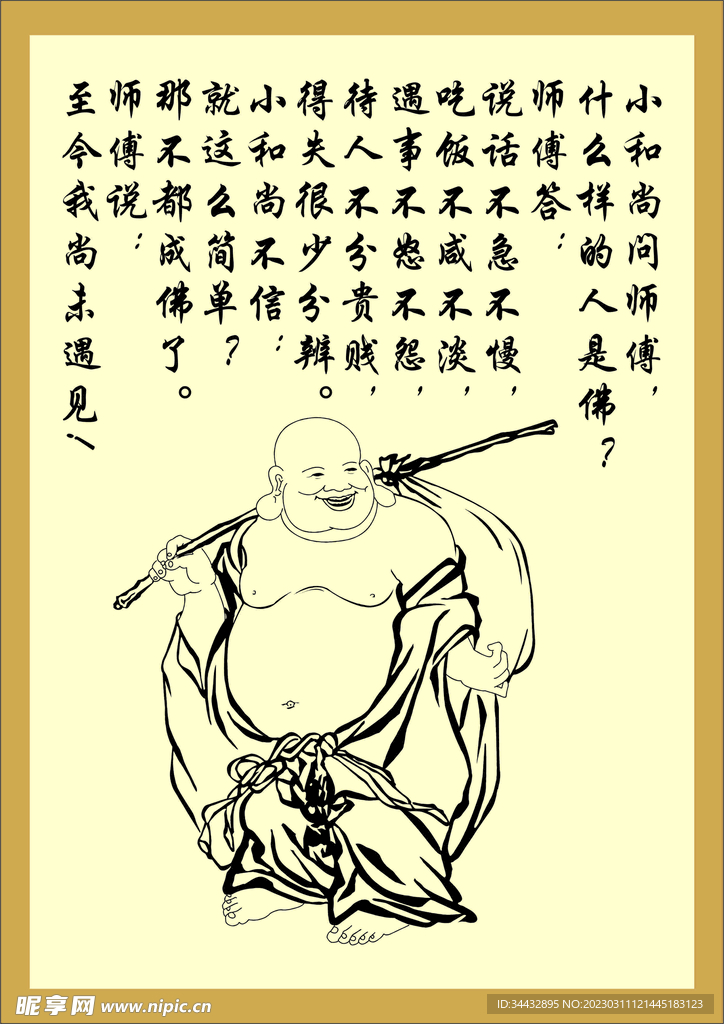 小和尚问师傅，
什么样的人是佛？
师傅答：
说话不急不慢，
吃饭不咸不淡，
遇事不怒不怨，
待人不分贵贱，
得失很少分辨。
小和尚不信：
就这么简单？
那不都成佛了。
师傅说：
至今我尚未遇见！
昵享网 www.nipic.cn
ID:34432895 NO:20230311121445183123